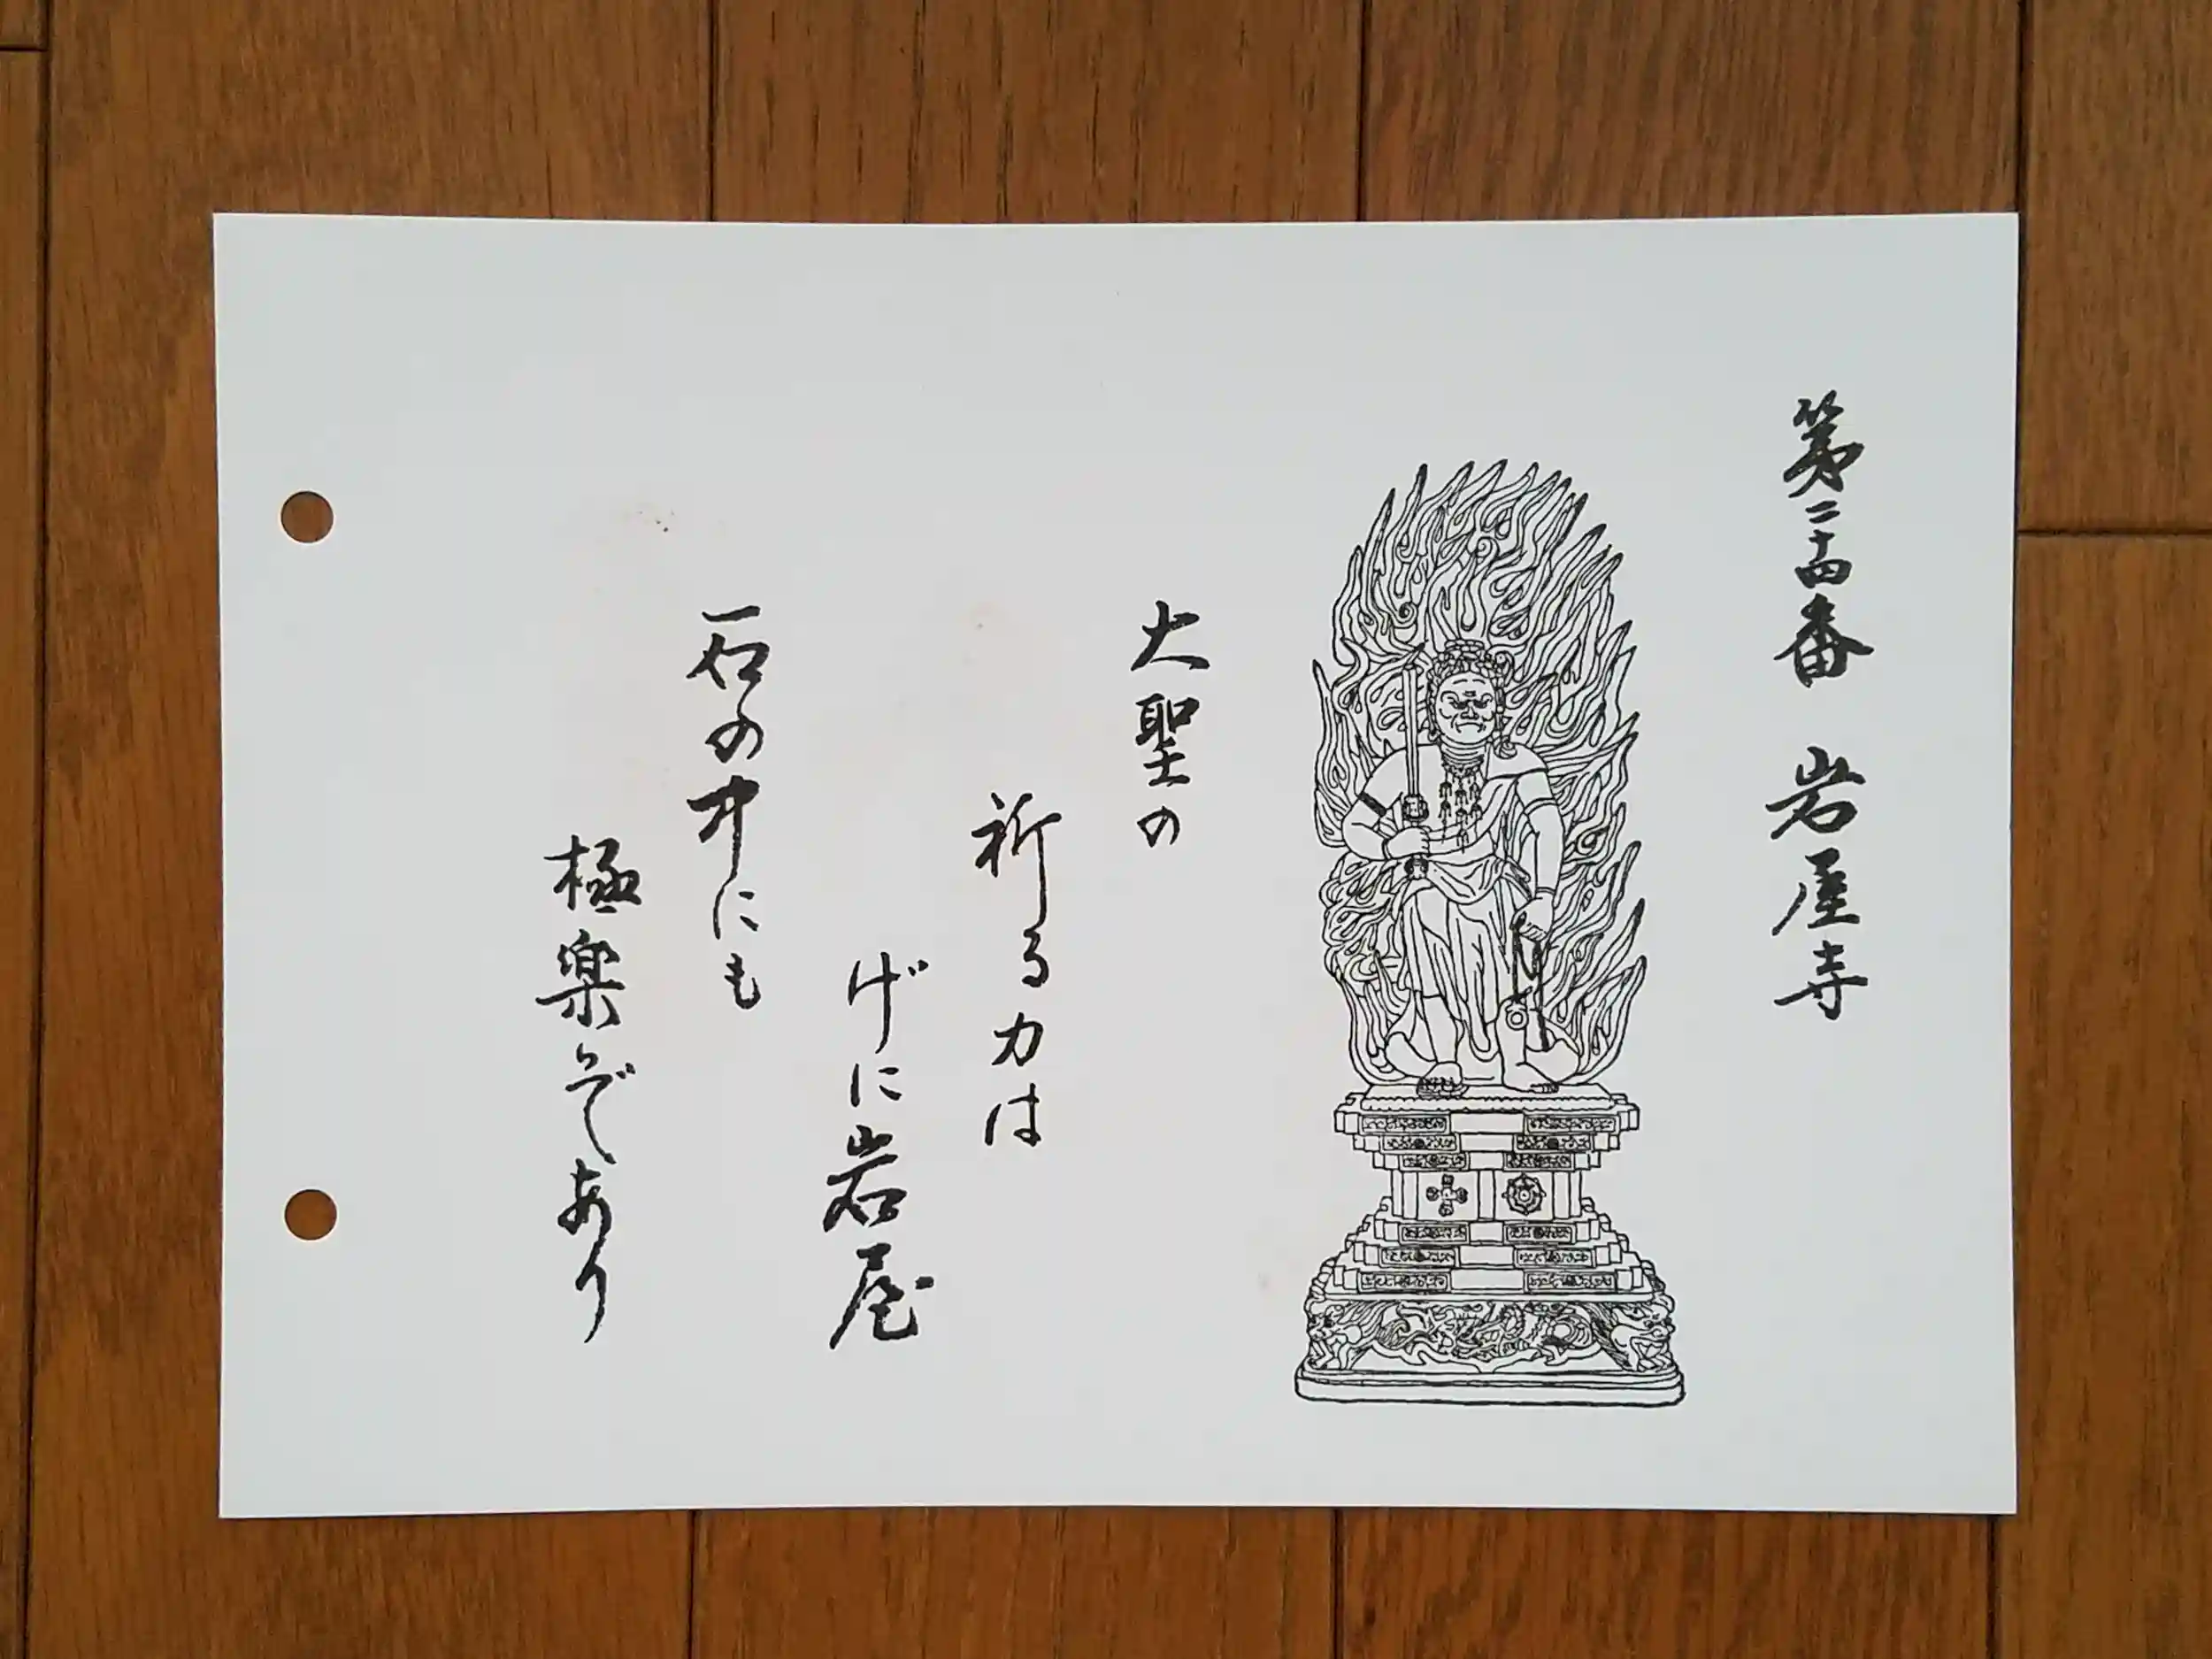 第二十四番　岩屋寺
大聖の
祈る力は
げに岩屋
石の中にも
極楽ぞあり